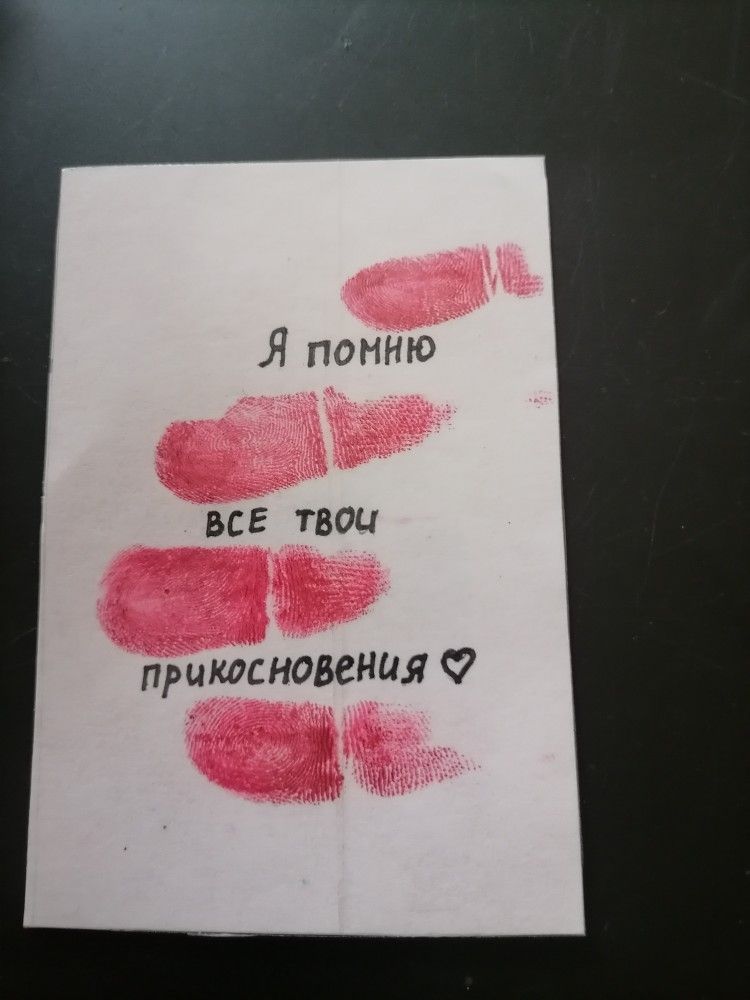 Я помню
все твои
прикосновения ♡